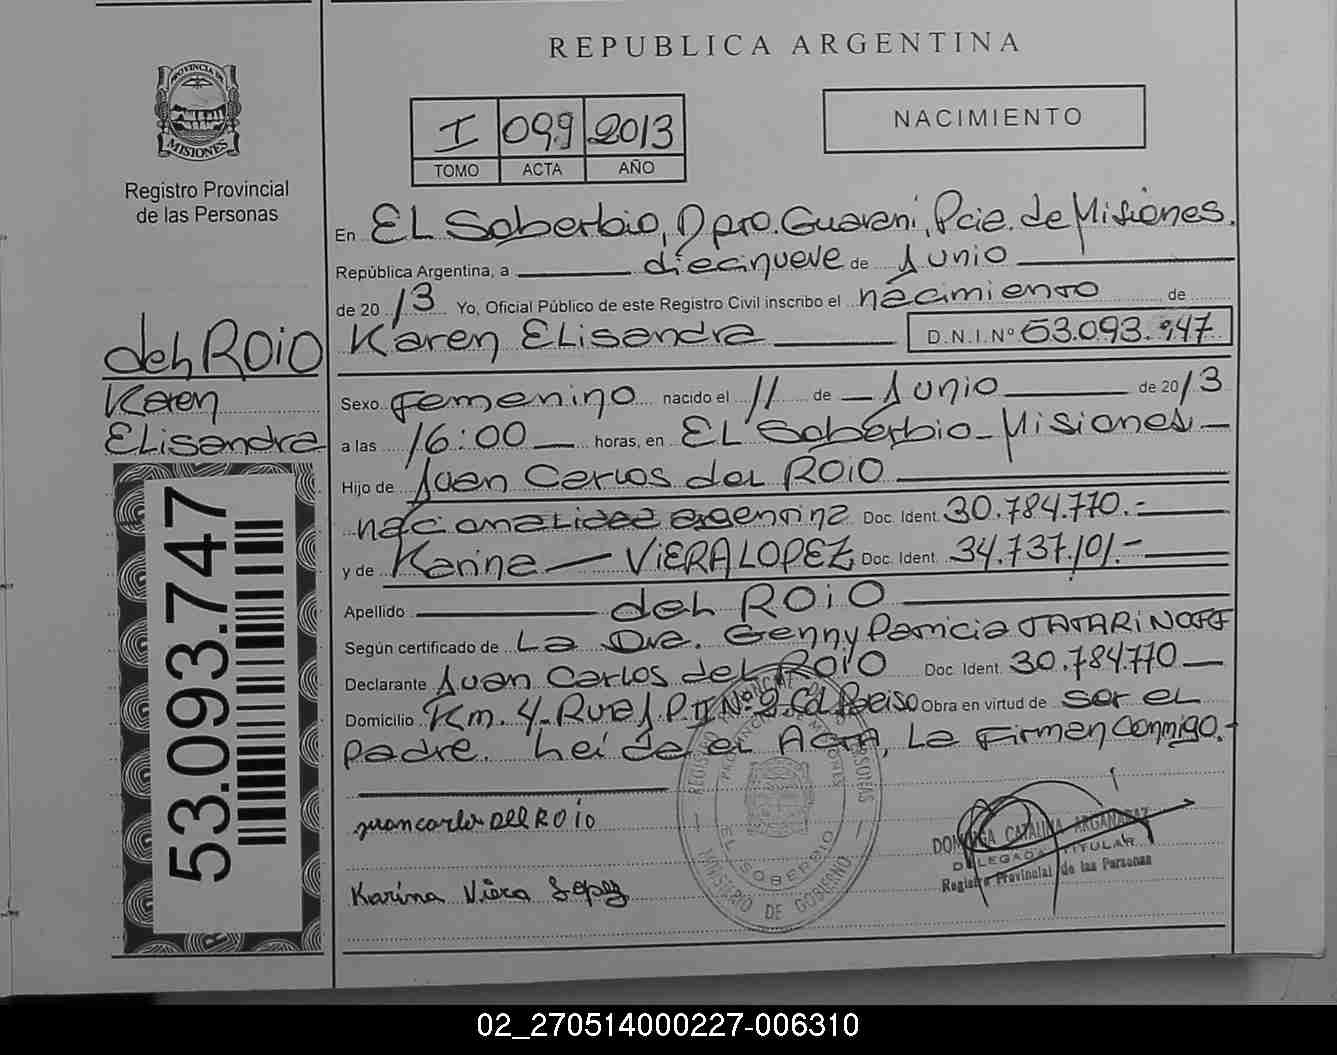 REPUBLICA ARGENTINA
PROVINCIA DE
MISIONES
Registro Provincial
de las Personas
I 099 2013
TOMO ACTA AÑO
NACIMIENTO
En EL Soberbio, Dpto. Guaraní, Pcia. de Misiones.
República Argentina, a diecinueve de Junio
de 2013 Yo, Oficial Público de este Registro Civil inscribo el nacimiento de
Karen ELisandra D.N.I.Nº 53.093.747
del ROiO
Karen
ELisandra
53.093.747
Sexo Femenino nacido el 11 de Junio de 2013
a las 16:00 horas, en EL Soberbio - Misiones
Hijo de Juan Carlos del ROiO
nacionalidad argentina Doc. Ident. 30.784.770.-
y de Karina ViERA LOPEZ Doc. Ident. 34.737.101.-
Apellido del ROiO
Según certificado de La Dra. Genny Patricia TATARiNOFF
Declarante Juan Carlos del ROiO Doc. Ident. 30.784.770
Domicilio Km. 4 - Ruta Obra en virtud de ser el
padre. Leída el ACTA, La Firman conmigo.-
juan carlos DEL ROiO
Karina Viera Lopez
REGISTRO PROVINCIAL DE LAS PERSONAS
PROVINCIA DE MISIONES
EL SOBERBIO
MINISTERIO DE GOBIERNO
CATALINA
DELEGADA TITULAR
Registro Provincial de las Personas
02_270514000227-006310